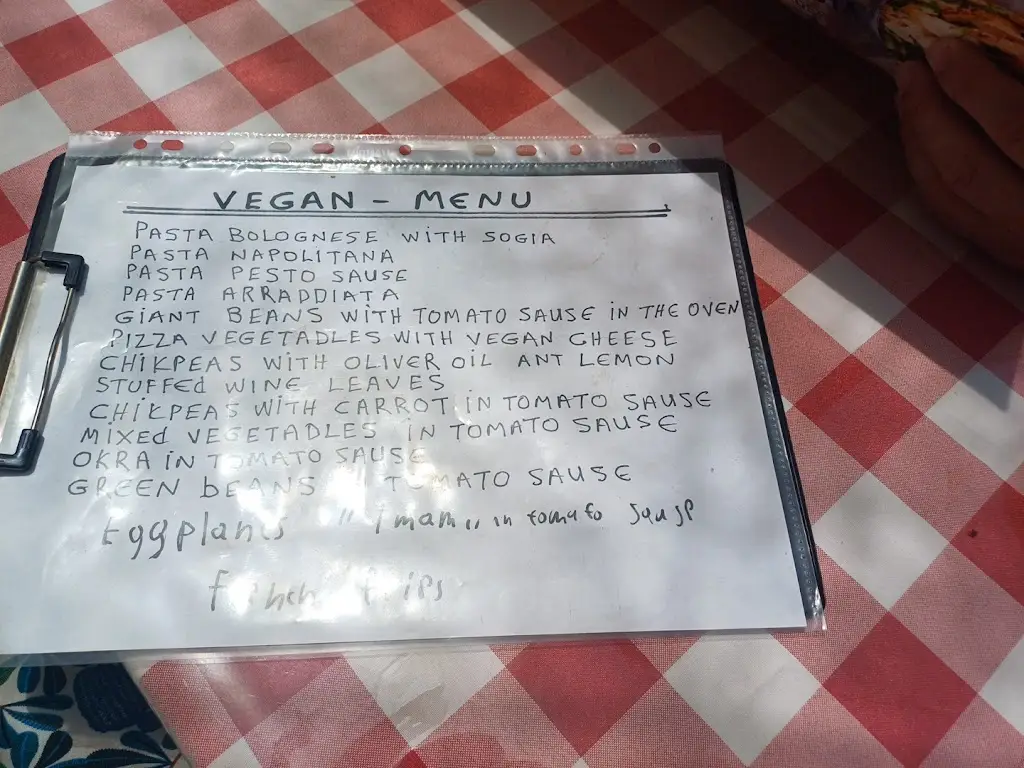 VEGAN - MENU
PASTA BOLOGNESE WITH SOGIA
PASTA NAPOLITANA
PASTA PESTO SAUSE
PASTA ARRADDIATA
GIANT BEANS WITH TOMATO SAUSE IN THE OVEN
PIZZA VEGETADLES WITH VEGAN CHEESE
CHIKPEAS WITH OLIVER OIL ANT LEMON
STUFFEd WINE LEAVES
CHIKPEAS WITH CARROT IN TOMATO SAUSE
MIXEd VEGETADLES IN TOMATO SAUSE
OKRA IN TOMATO SAUSE
GREEN bEANS " TOMATO SAUSE
Eggplants "imam" in tomato sause